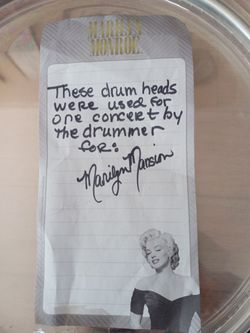 MARILYN
MONROE
These drum heads
were used for
one concert by
the drummer
for:
Marilyn Manson